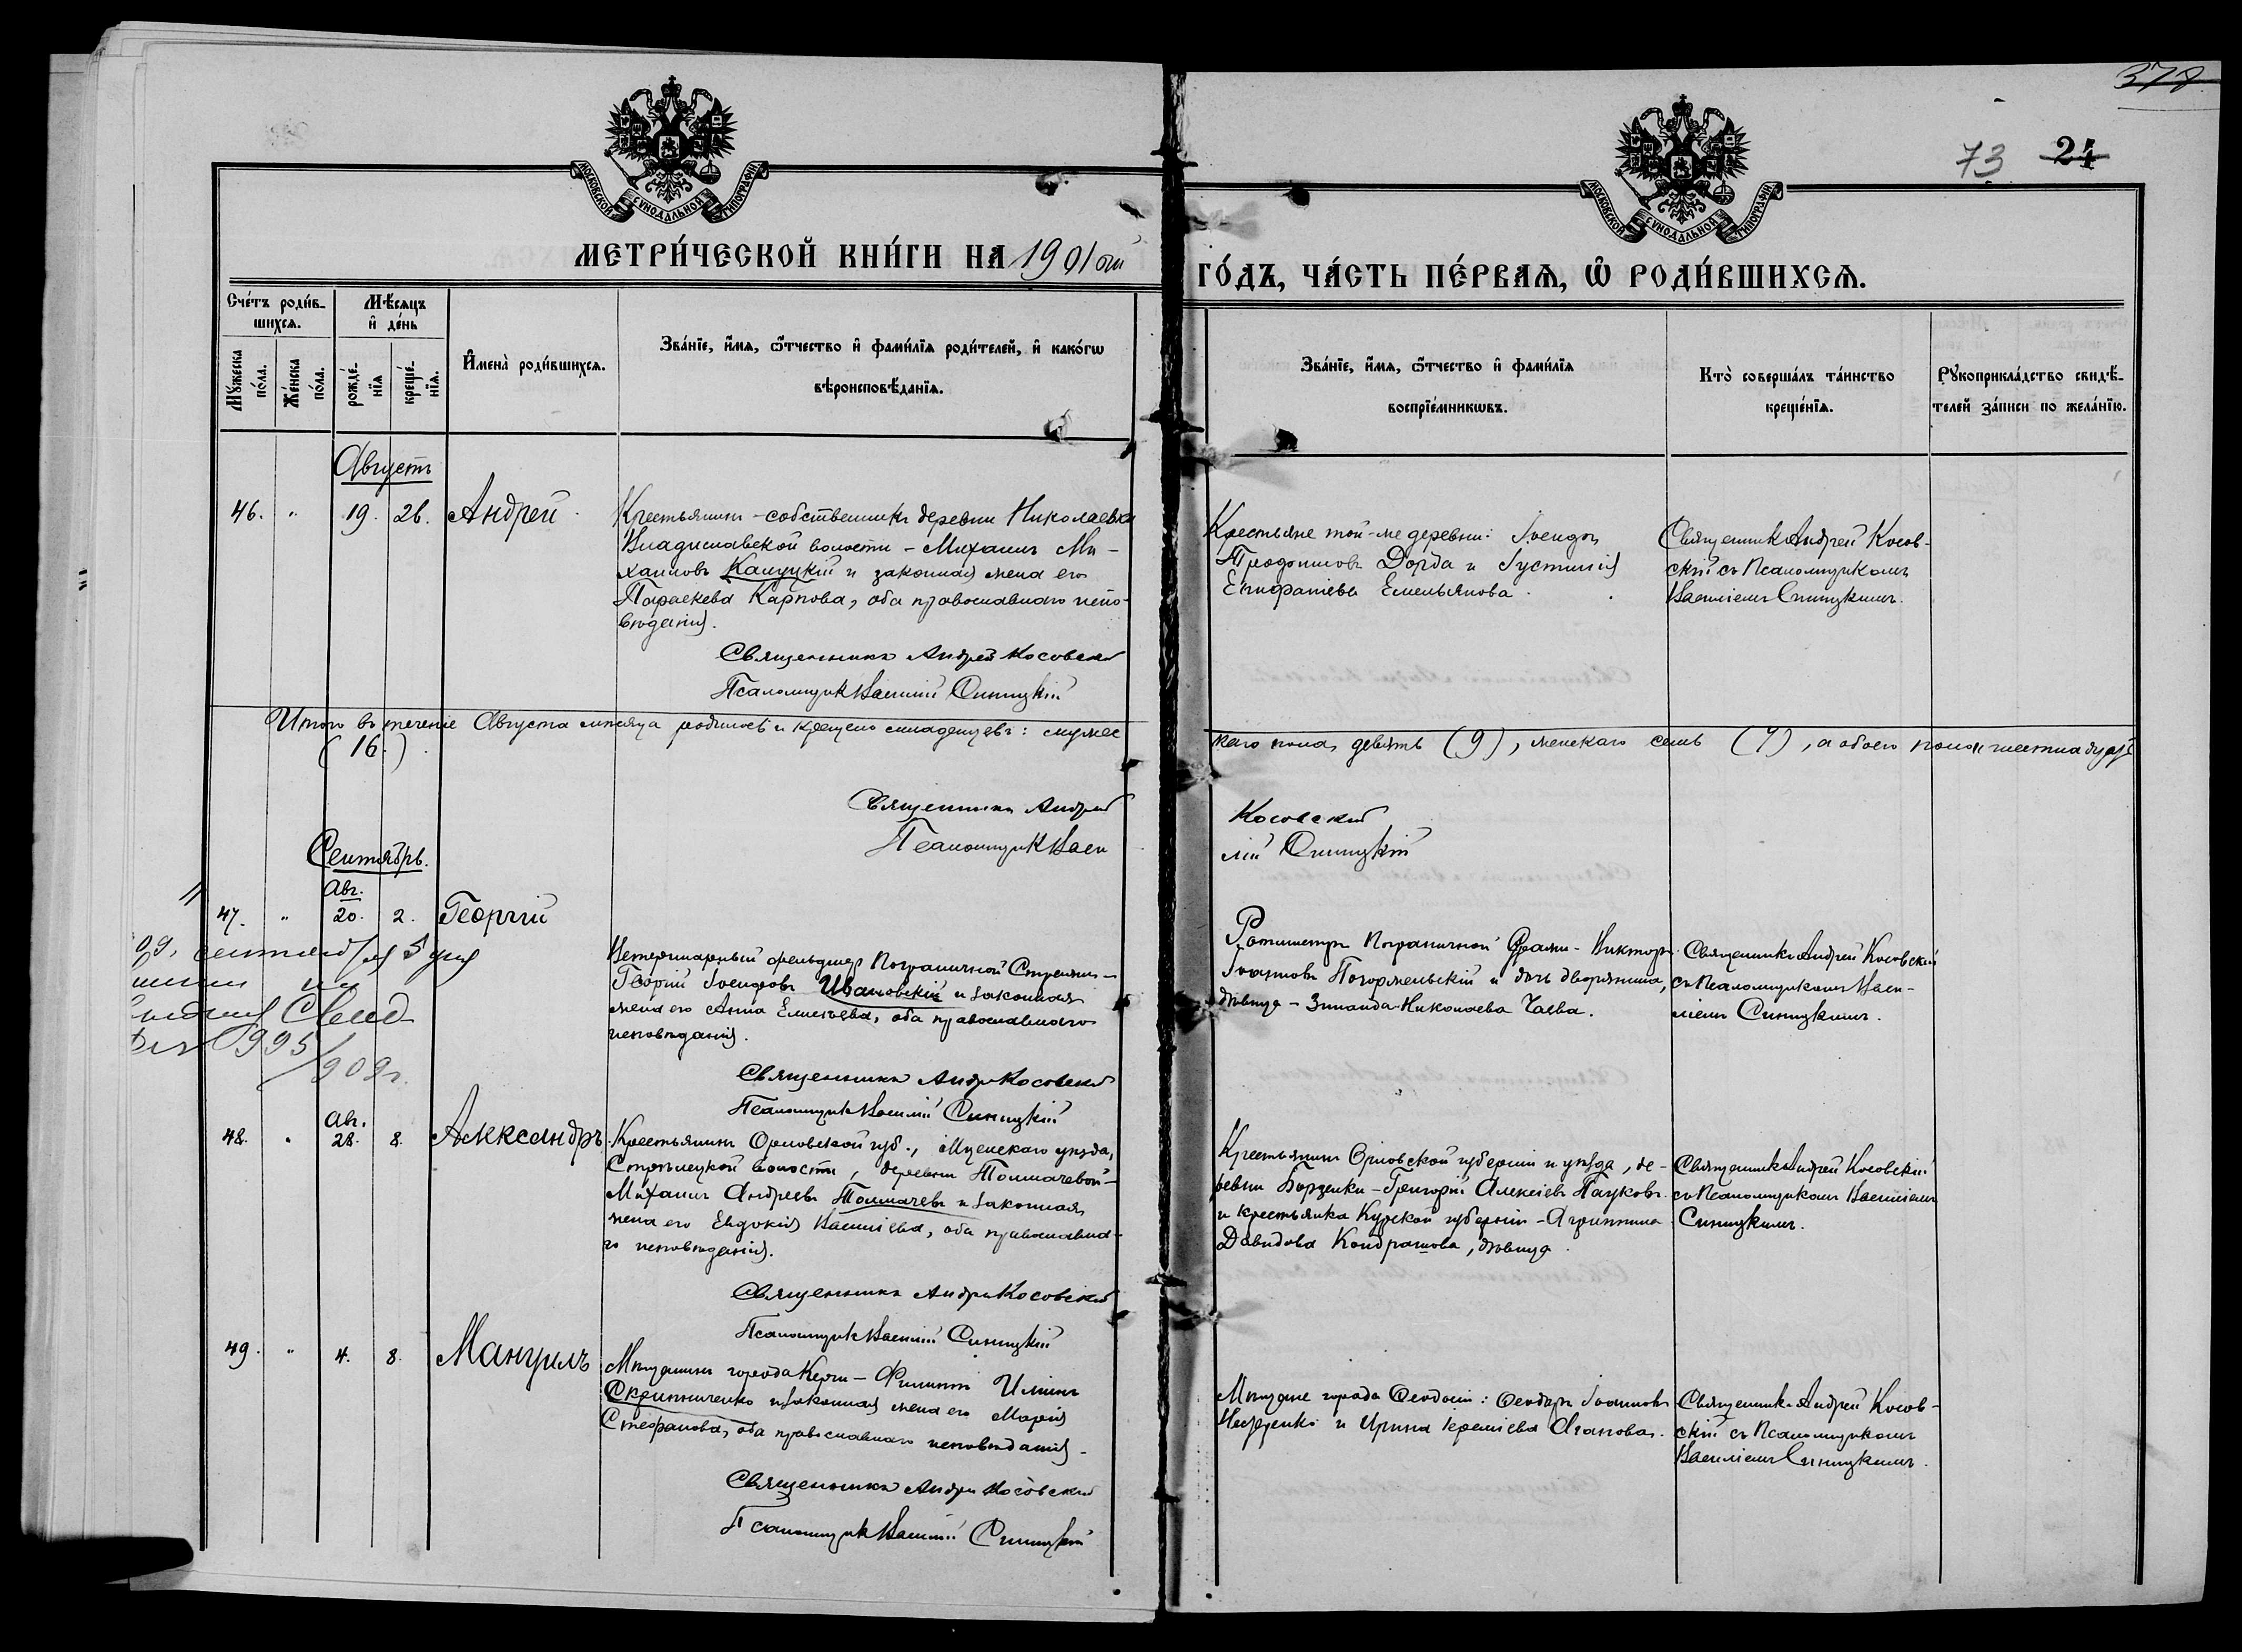 378
73 24
МОСКОВСКОЙ СѴНОДАЛЬНОЙ ТИПОГРАФІИ
МОСКОВСКОЙ СѴНОДАЛЬНОЙ ТИПОГРАФІИ
МЕТРИ́ЧЕСКОЙ КНИ́ГИ НА 1901ой
ГО́ДЪ, ЧА́СТЬ ПЕ́РВАѦ, Ѽ РОДИ́ВШИХСѦ.
Сче́тъ роди́в-
шихсѧ.
Мѣ́сѧцъ
и҆ де́нь
Мꙋ́жеска
по́ла.
Же́нска
по́ла.
рожде́-
нїѧ
креще́-
нїѧ.
И҆мена̀ роди́вшихсѧ.
Зва́нїе, и҆́мѧ, ѻ҆́тчество и҆ фами́лїѧ роди́телей, и҆ како́гѡ
вѣроисповѣ́данїѧ.
Зва́нїе, и҆́мѧ, ѻ҆́тчество и҆ фами́лїѧ
воспрїе́мникѡвъ.
Кто̀ соверша́лъ та́инство
креще́нїѧ.
Рꙋкоприкла́дство свидѣ́-
телей за́писи по жела́нїю.
Августъ
46. " 19. 26. Андрей
Крестьянинъ-собственникъ деревни Николаевки
Владиславской волости - Михаилъ Ми-
хаиловъ Калуцкій и законная жена его
Параскева Карпова, оба православнаго испо-
вѣданія.
Священникъ Андрей Косовскій
Псаломщикъ Василій Синицкій
Крестьяне той-же деревни:
Дорда и Іустинія
Емельянова.
Священникъ Андрей Косов-
скій съ Псаломщикомъ
Василіемъ Синицкимъ.
Итого въ теченіе Августа мѣсяца родилось и крещено младенцевъ: мужес
каго пола, девять (9), женскаго семь (7), а обоего пола шестнадцать
(16.)
Священникъ Андрей
Косовскій
Псаломщикъ Васи
лій Синицкій
Сентябрь.
Авг.
47. " 20. 2. Георгій
Ветеринарный фельдшеръ Пограничной Стражи -
Георгій Іосифовъ Ивановскій и законная
жена его Анна Елисѣева, оба православнаго
исповѣданія.
Священникъ Андрей Косовскій
Псаломщикъ Василій Синицкій
Ротмистръ Пограничной Стражи - Викторъ
Іоанновъ Погоржельскій и дочь дворянина,
дѣвица - Зинаида Николаева Чаева.
Священникъ Андрей Косовскій
съ Псаломщикомъ Васи-
ліемъ Синицкимъ.
09. сентября 5 дня
995
/909г.
Авг.
48. " 28. 8. Александръ
Крестьянинъ Орловской губ., Мценскаго уѣзда,
Стрѣлецкой волости, деревни Толмачевой -
Михаилъ Андреевъ Толмачевъ и законная
жена его Евдокія Василіева, оба православна-
го исповѣданія.
Священникъ Андрей Косовскій
Псаломщикъ Василій Синицкій
Крестьянинъ Орловской губерніи и уѣзда, де-
ревни Борзенки - Григорій Алексіевъ Пауковъ
и крестьянка Курской губерніи - Агриппина
Давидова Кондрашова, дѣвица.
Священникъ Андрей Косовскій
съ Псаломщикомъ Василіемъ
Синицкимъ.
49. " 4. 8. Мануилъ
Мѣщанинъ города Керчи - Филиппъ Ильинъ
Скрипниченко и законная жена его Марія
Стефанова, оба православнаго исповѣданія.
Священникъ Андрей Косовскій
Псаломщикъ Василій Синицкій
Мѣщане города Ѳеодосіи: Ѳеодоръ Іоанновъ
и Ирина Агапова.
Священникъ Андрей Косов-
скій съ Псаломщикомъ
Василіемъ Синицкимъ.